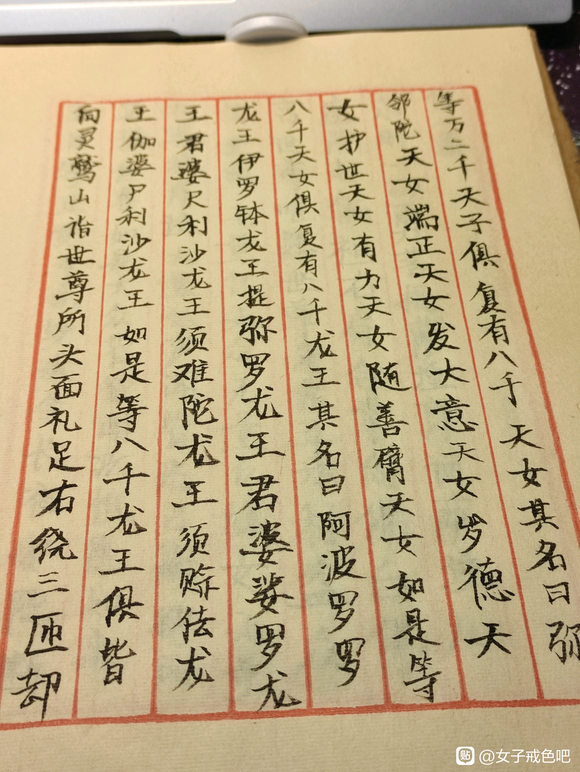 等万二千天子俱复有八千天女其名曰弥
邻陀天女端正天女发大意天女岁德天
女护世天女有力天女随善臂天女如是等
八千天女俱复有八千龙王其名曰阿波罗罗
龙王伊罗钵龙王提弥罗龙王君婆娑罗龙
王君婆尺利沙龙王须难陀龙王须赊佉龙
王伽婆尸利沙龙王如是等八千龙王俱皆
向灵鹫山诣世尊所头面礼足右绕三匝却
贴 @女子戒色吧